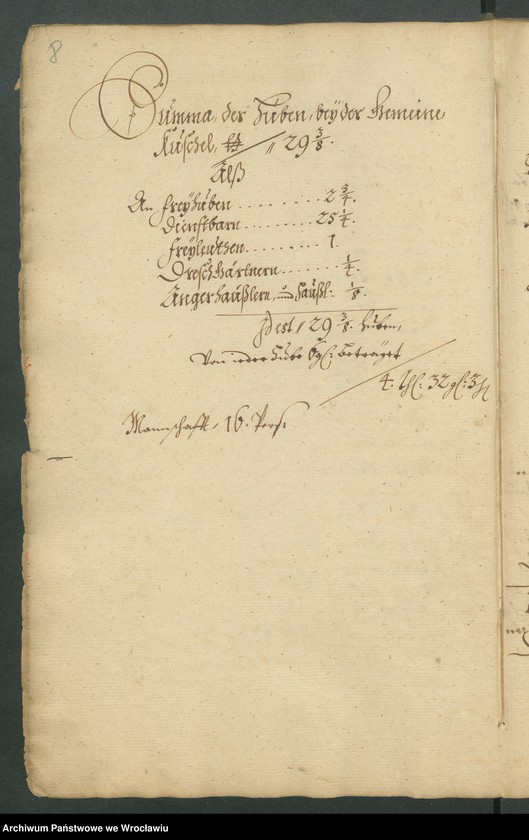 8
Summa, der Huben, bey der Gemeine
Kuschel, // 29 3/8.
Alß
An Freyhuben . . . . . . . . . 2 3/4.
Dienstbarn . . . . . . . . 25 1/4.
Freyleuthen . . . . . . . . 1.
Droschgärtnern . . . . . . 1/4.
Angerhäußlern, und Häußl: 1/8.
Facit // 29 3/8. Huben,
Von ieder Hube 6 gl: beträget
4. thl: 32 gl: 3 hl
Mannschafft, 16. Pers:
Archiwum Państwowe we Wrocławiu